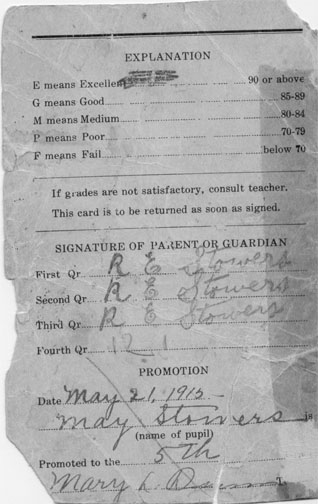 EXPLANATION
E means Excellent 90 or above
G means Good 85-89
M means Medium 80-84
P means Poor 70-79
F means Fail below 70
If grades are not satisfactory, consult teacher.
This card is to be returned as soon as signed.
SIGNATURE OF PARENT OR GUARDIAN
First Qr R E Stowers
Second Qr R E Stowers
Third Qr R E Stowers
Fourth Qr
PROMOTION
Date May 21, 1915
May Stowers is
(name of pupil)
Promoted to the 5th
Mary L.